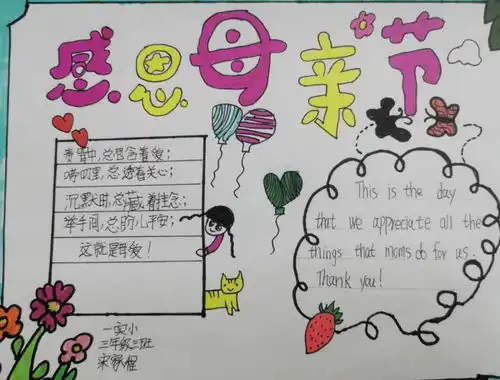 感恩母亲节
责备中,总包含着爱;
唠叨里,总透着关心;
沉默时,总藏着挂念;
举手间,总盼儿平安;
这就是母爱!
This is the day
that we appreciate all the
things that moms do for us.
Thank you!
一实小
三年级三班